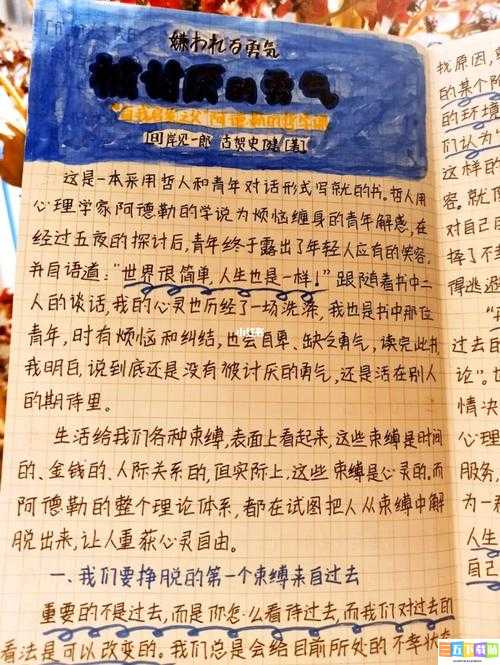 嫌われる勇気
被讨厌的勇气
"自我启发之父"阿德勒的哲学课
[日]岸见一郎 古贺史健[著]
这是一本采用哲人和青年对话形式写就的书。哲人用
心理学家阿德勒的学说为烦恼缠身的青年解惑,在
经过五夜的探讨后,青年终于露出了年轻人应有的笑容,
并自语道:"世界很简单,人生也是一样!"跟随着书中二
人的谈话,我的心灵也历经了一场洗涤,我也是书中那位
青年,时有烦恼和纠结,也会自卑、缺乏勇气,读完此书,
我明白,说到底还是没有被讨厌的勇气,还是活在别人
的期待里。
生活给我们各种束缚,表面上看起来,这些束缚是时间
的、金钱的、人际关系的,但实际上,这些束缚是心灵的。而
阿德勒的整个理论体系,都在试图把人从束缚中解
脱出来,让人重获心灵自由。
一、我们要挣脱的第一个束缚来自过去
重要的不是过去,而是你怎么看待过去,而我们对过去的
看法是可以改变的。我们总是会给目前所处的不幸状态
找原因,
的某个
的环境
们认为
这样的
容。就
对自己
择了不
得逃避
过去的
论"。
情决
心理
服务,
为一
人生
自己
小红书
三五下载网